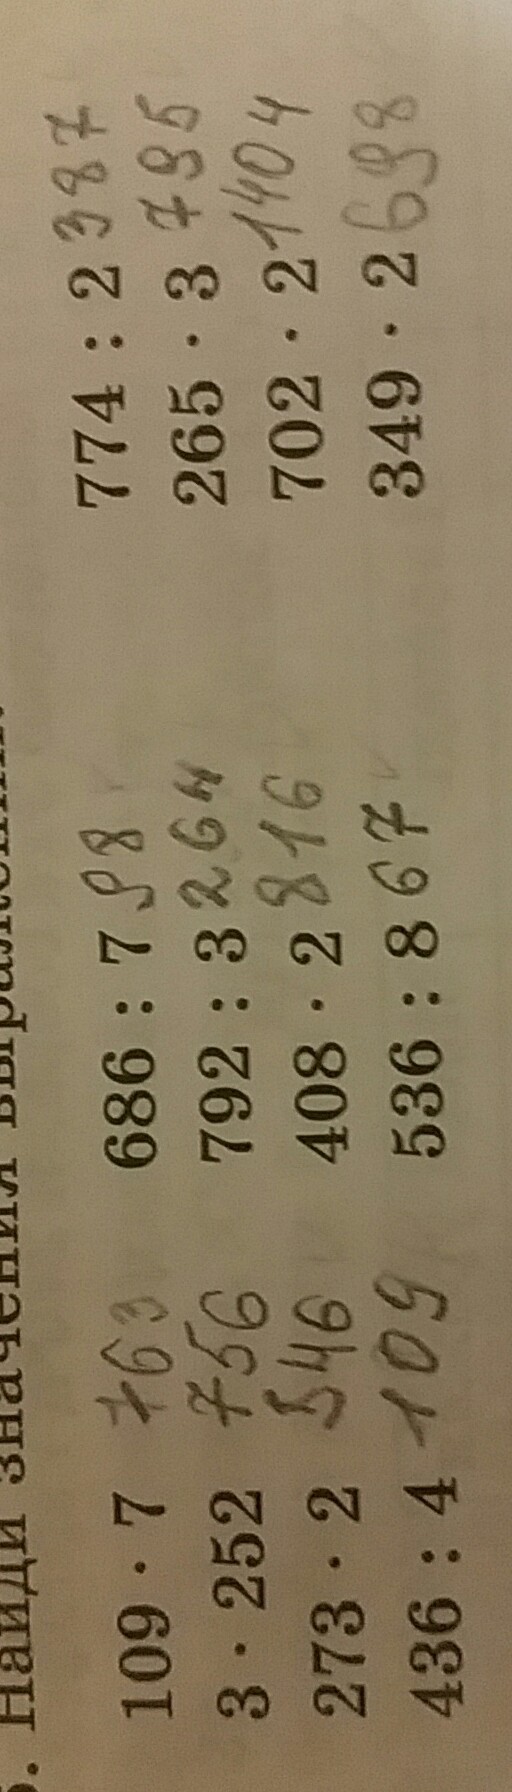 . Найди значения выражений.
109 · 7 763 686 : 7 98 774 : 2 387
3 · 252 756 792 : 3 264 265 · 3 795
273 · 2 546 408 · 2 816 702 · 2 1404
436 : 4 109 536 : 8 67 349 · 2 698